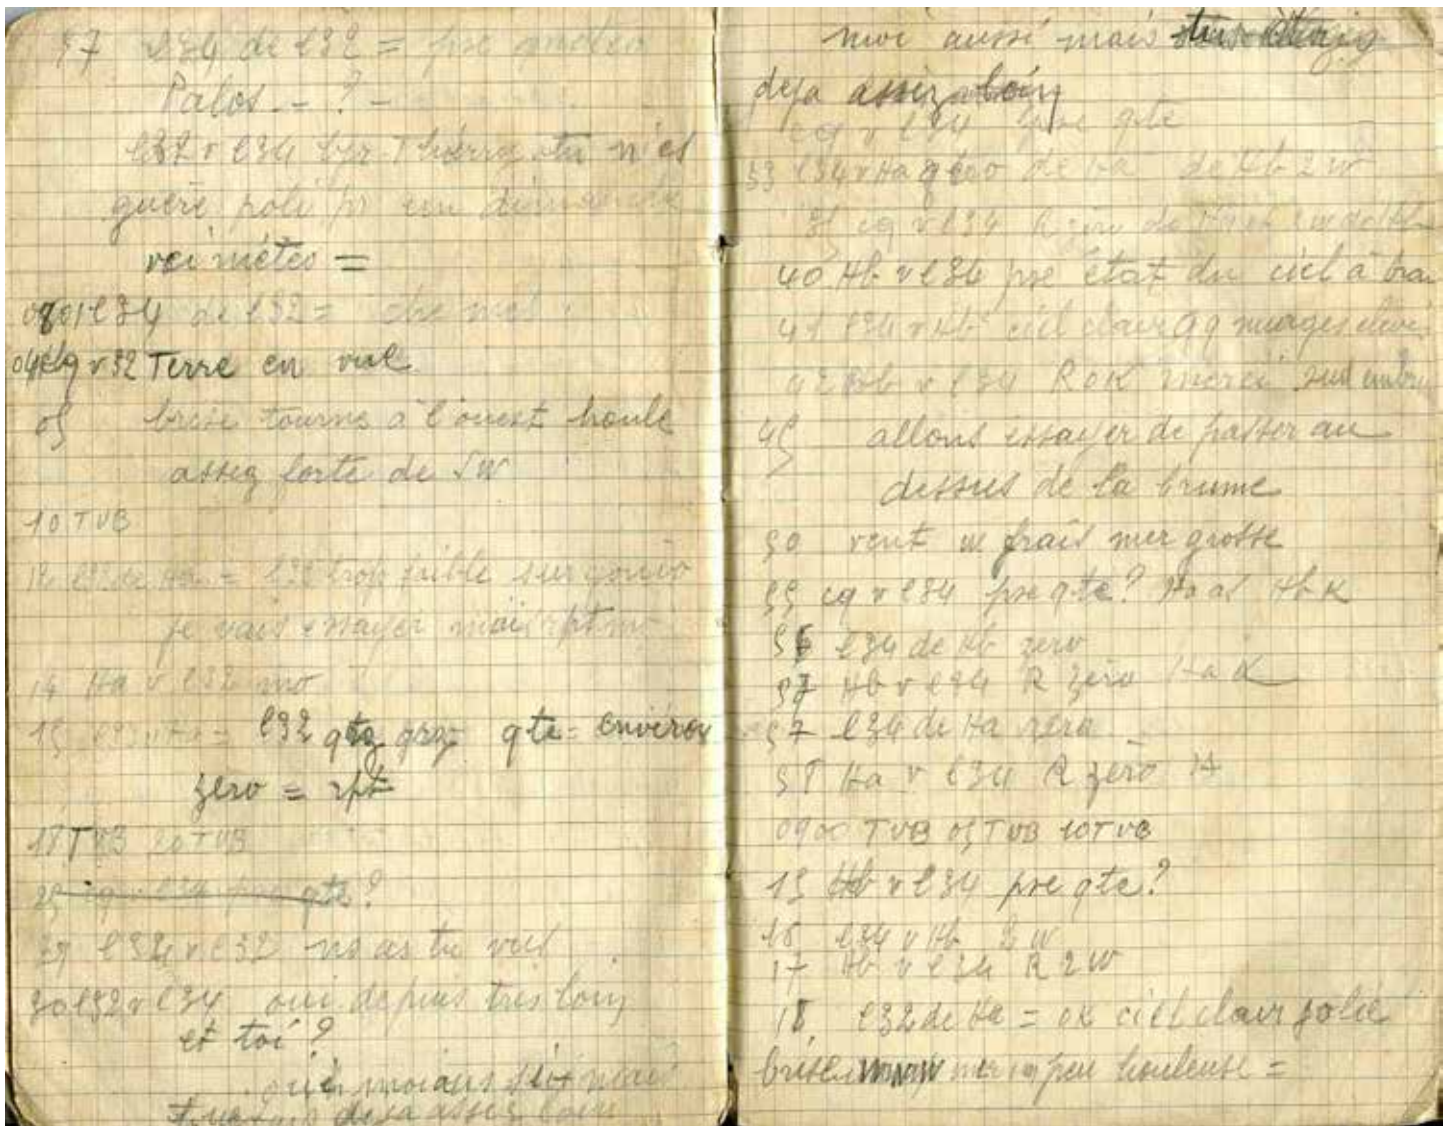 57 l34 de l32 = pse
Palos - ? -
l32 v l34 bjr Thierry tu n'es
guère poli pr un dimanche
vci météo =
0801 l34 de l32 =
04 cq v 32 Terre en vue
05 brise tourne à l'ouest houle
assez forte de SW
10 TVB
12 l32 de Ha = l32 trop faible sur gonio
je vais essayer mais rpt mo
14 Ha v l32 mo
15 l32 v Ha = l32 qtg grz qte = environ
zero = rpt
18 TVB 20 TVB
25 cq v l34 pse qte ?
29 l34 v l32 ns as tu vus
30 l32 v l34 oui depuis très loin
et toi ?
oui moi aussi mais
tu étais deja assez loin
moi aussi mais tu étais
deja assez loin
cq v l34 pse qte
33 l34 v Ha zéro de Ha de Hb 2 W
35 cq v l34 R zéro de Ha et 2 W de Hb
40 Hb v l34 pse état du ciel à
41 l34 v Hb ciel clair qq nuages
42 Hb v l34 R OK merci sud
45 allons essayer de passer au
dessus de la brume
50 vent w frais mer grosse
55 cq v l34 pse qte ? Ha as Hb K
56 l34 de Hb zero
57 Hb v l34 R zero Ha K
57 l34 de Ha zero
58 Ha v l34 R zero
0900 TVB 05 TVB 10 TVB
15 Hb v l34 pse qte ?
16 l34 v Hb 2 W
17 Hb v l34 R 2 W
18 l32 de Ha = OK ciel clair jolie
brise mer un peu houleuse =